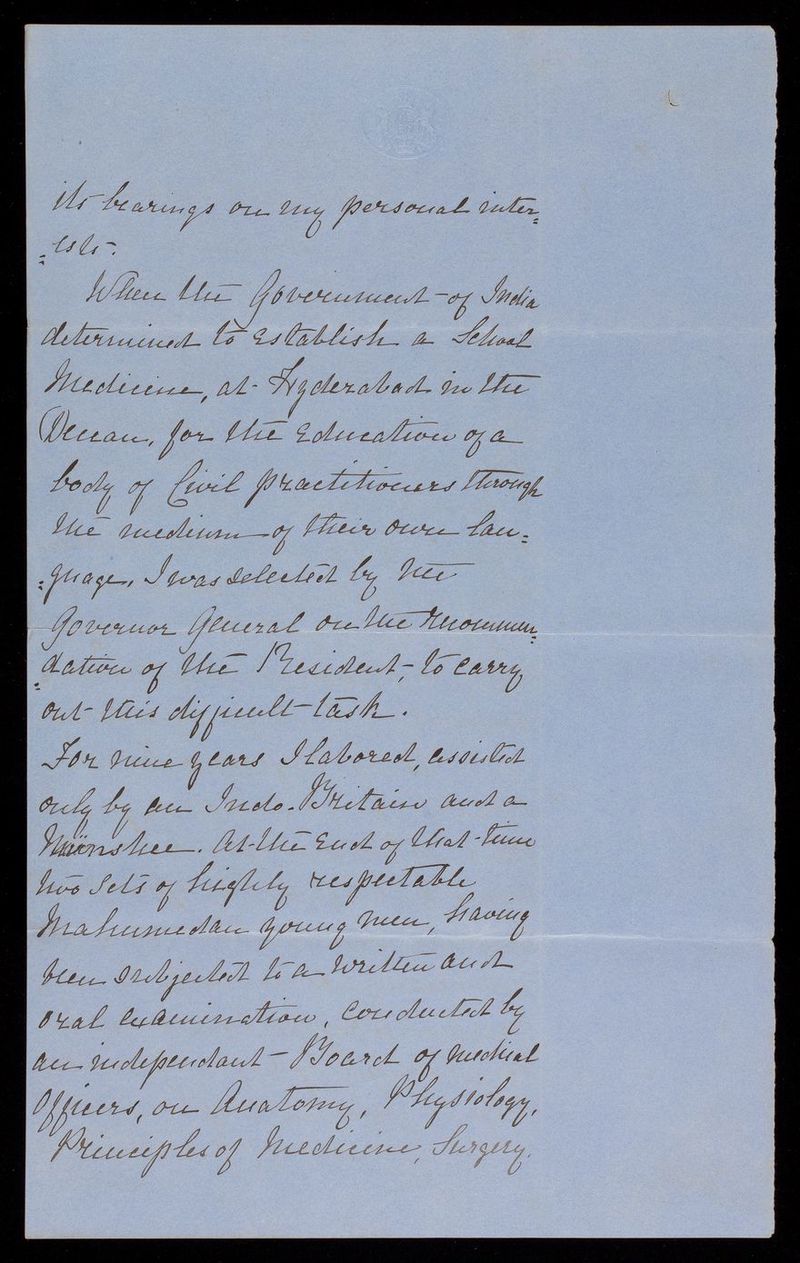 its bearings on my personal inter=
=ests.
When the Government of India
determined to establish a School
Medicine, at Hyderabad in the
Deccan, for the education of a
body of Civil practitioners through
the medium of their own lan=
=guage, I was selected by the
Governor General on the recommen=
=dation of the Resident, to carry
out this difficult task.
For nine years I labored, assisted
only by an Indo-Britain and a
Moonshee. At the end of that time
two sets of highly respectable
Mahumedan young men, having
been subjected to a written and
oral examination, conducted by
an independant Board of medical
Officers, on Anatomy, Physiology,
Principles of Medicine, Surgery,